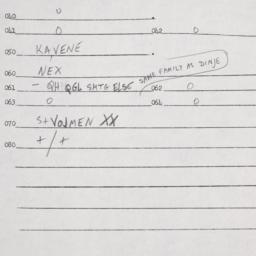 040 0
041 0 042 0
050 KAVENE
060 NEX
061 - QH QGL SHTG ELSE SAME FAMILY AS DINJE 062 0
063 0 064 0
070 S+VOWMEN XX
080 +/+